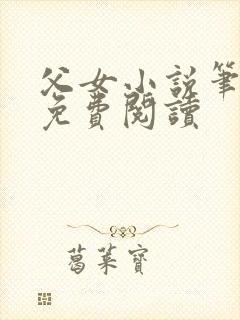 父女小說筆
免費閱讀
葛菓寶